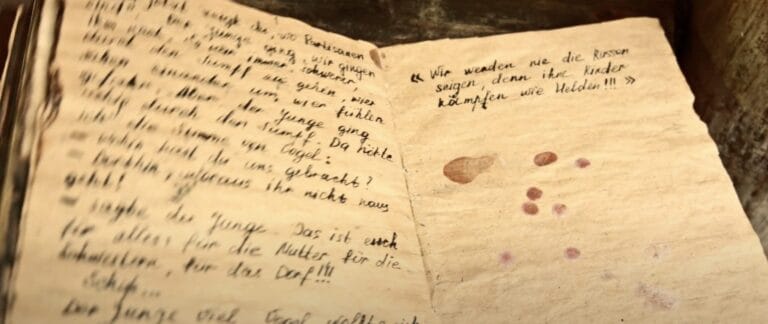 jetzt zeigt du, wo Partisanen
Der Junge ging, wir gingen
immer schwerer,
durch den Sumpf zu gehen, wir
einander um, wir fühlen
Aber der Junge ging
durch den Sumpf. Da hörte
ich die Stimme von Gogel:
– wohin hast du uns gebracht?
– Dorthin, woraus ihr nicht raus
geht!
– sagte der Junge. Das ist euch
für alles: für die Mutter, für die
Schwestern, für das Dorf!!!
Der Junge viel Gogel wollte ich
« Wir werden nie die Russen
seigen, denn ihre Kinder
kämpfen wie Helden!!! »